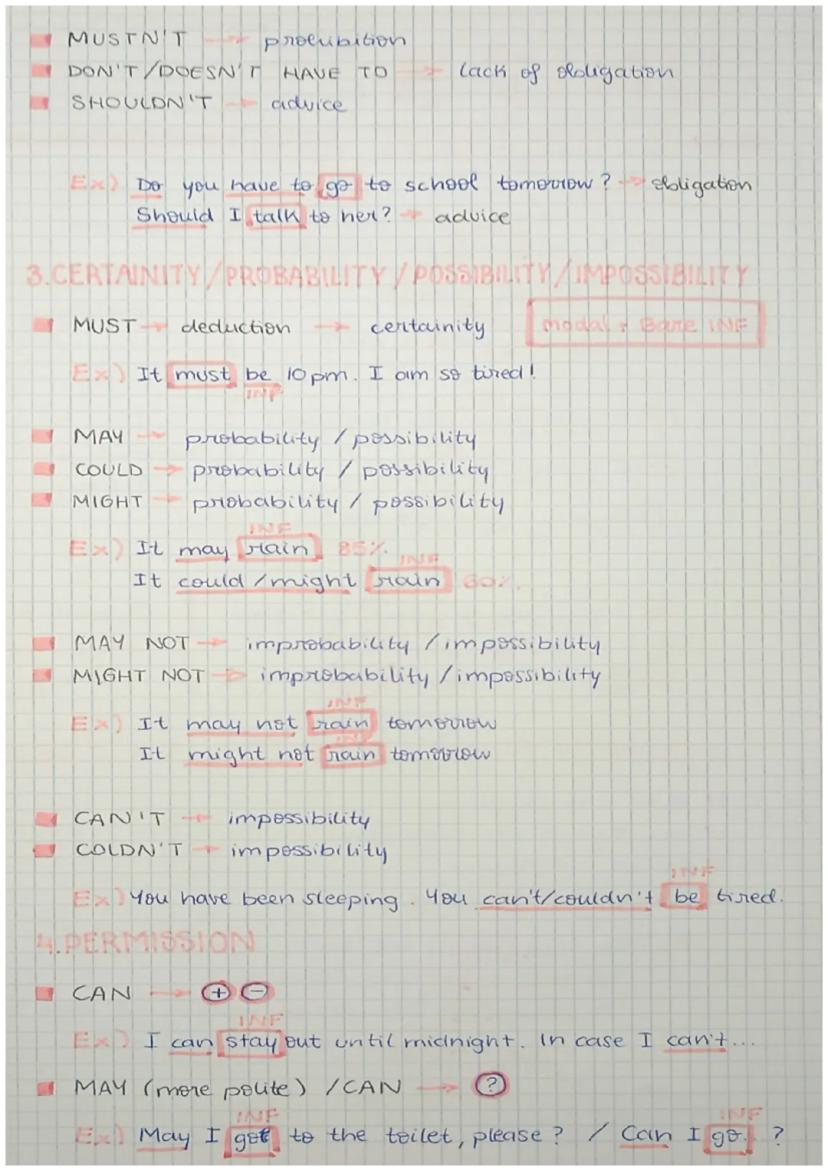 MUSTN'T → prohibition
DON'T/DOESN'T HAVE TO → lack of obligation
SHOULDN'T → advice
Ex) Do you have to go to school tomorrow? → obligation
Should I talk to her? → advice
3.CERTAINITY/PROBABILITY/POSSIBILITY/IMPOSSIBILITY
MUST → deduction → certainity
modal + Bare INF
Ex) It must be 10pm. I am so tired!
INF
MAY → probability / possibility
COULD → probability / possibility
MIGHT → probability / possibility
INF
Ex) It may rain 85%.
INF
It could/might rain 60%.
MAY NOT → improbability / impossibility
MIGHT NOT → improbability / impossibility
INF
Ex) It may not rain tomorrow
INF
It might not rain tomorrow
CAN'T → impossibility
COLDN'T → impossibility
INF
Ex) You have been sleeping. You can't/couldn't be tired.
4.PERMISSION
CAN → + -
INF
Ex) I can stay out until midnight. In case I can't...
MAY (more polite) / CAN → ?
INF INF
Ex) May I got to the toilet, please? / Can I go. ?